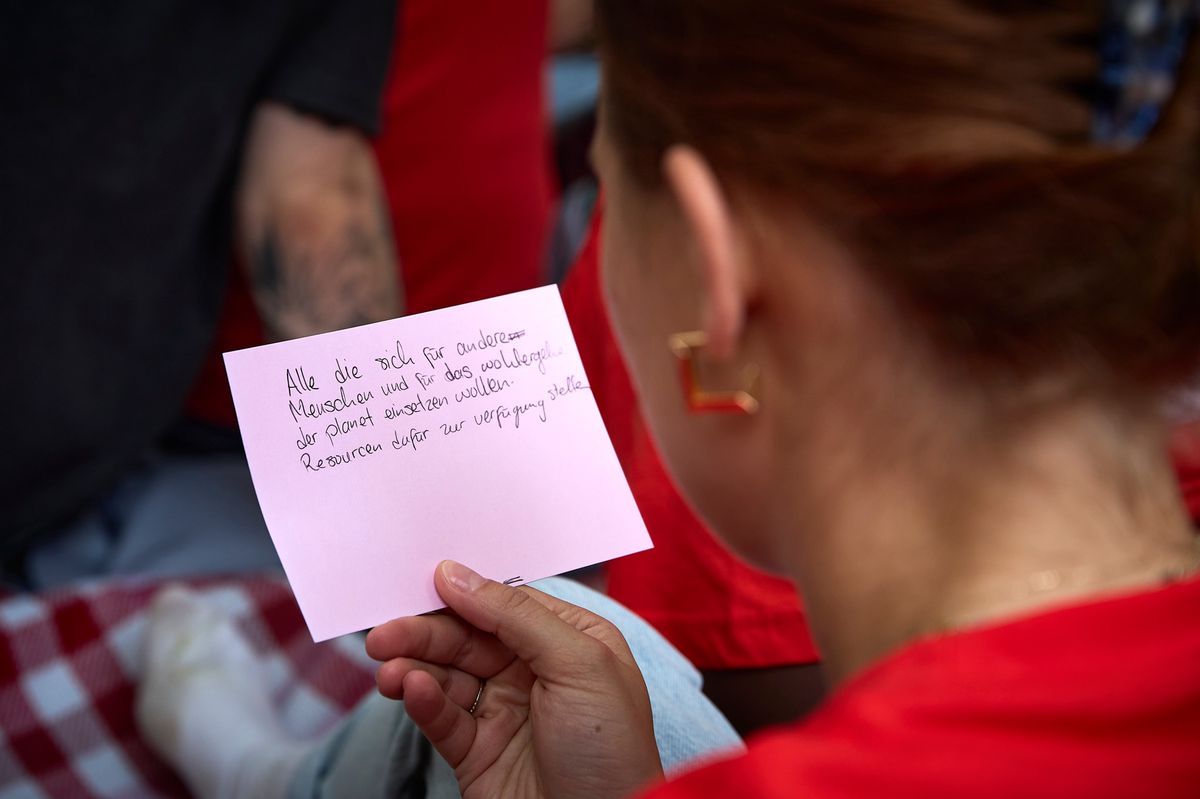 Alle die sich für andere
Menschen und für das wohlergehen
der planet einsetzen wollen.
Resourcen dafür zur verfügung stelle